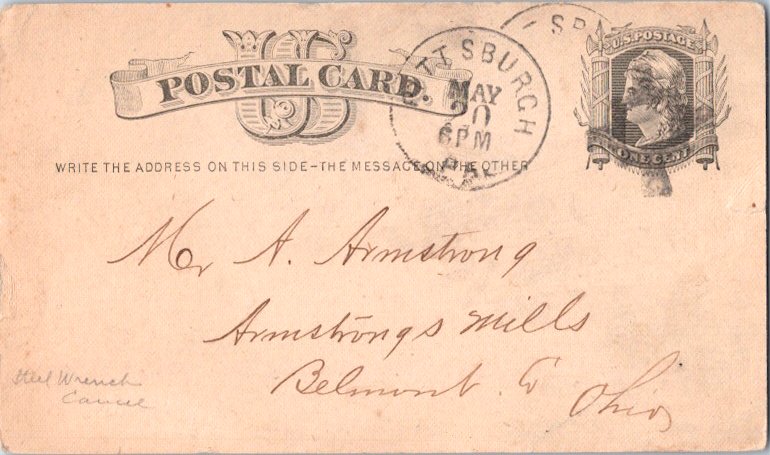 US
POSTAL CARD.
PITTSBURGH
MAY
20
6 PM
PA.
U.S. POSTAGE
ONE CENT
WRITE THE ADDRESS ON THIS SIDE - THE MESSAGE ON THE OTHER
Mr A. Armstrong
Armstrongs Mills
Belmont Co
Ohio
Steel Wrench
Cancel